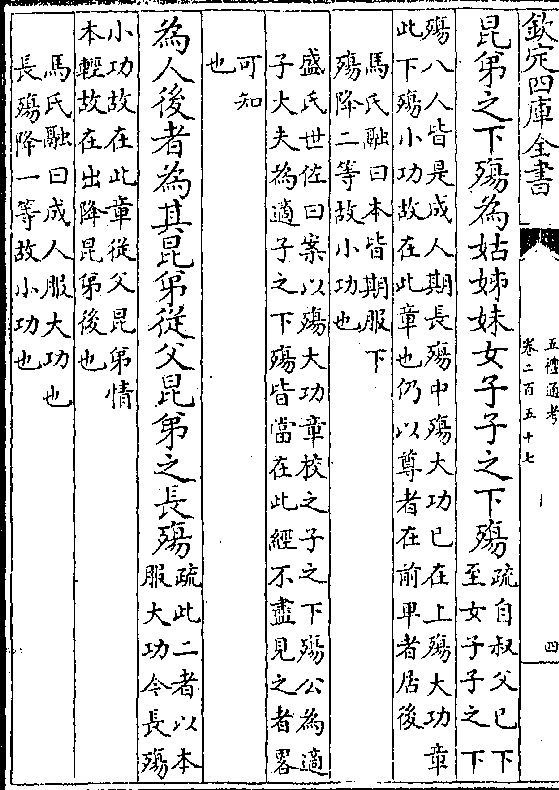 欽定四庫全書
五禮通考
卷二百五十七
四
昆弟之下殤為姑姊妹女子子之下殤疏自叔父已下
至女子子之下
殤八人皆是成人期長殤中殤大功已在上殤大功章
此下殤小功故在此章也仍以尊者在前卑者居後
馬氏融曰本皆期服下
殤降二等故小功也
盛氏世佐曰案以殤大功章校之子之下殤公為適
子大夫為適子之下殤皆當在此經不盡見之者畧
可知
也
為人後者為其昆弟從父昆弟之長殤疏此二者以本
服大功今長殤
小功故在此章從父昆弟情
本輕故在出降昆弟後也
馬氏融曰成人服大功也
長殤降一等故小功也